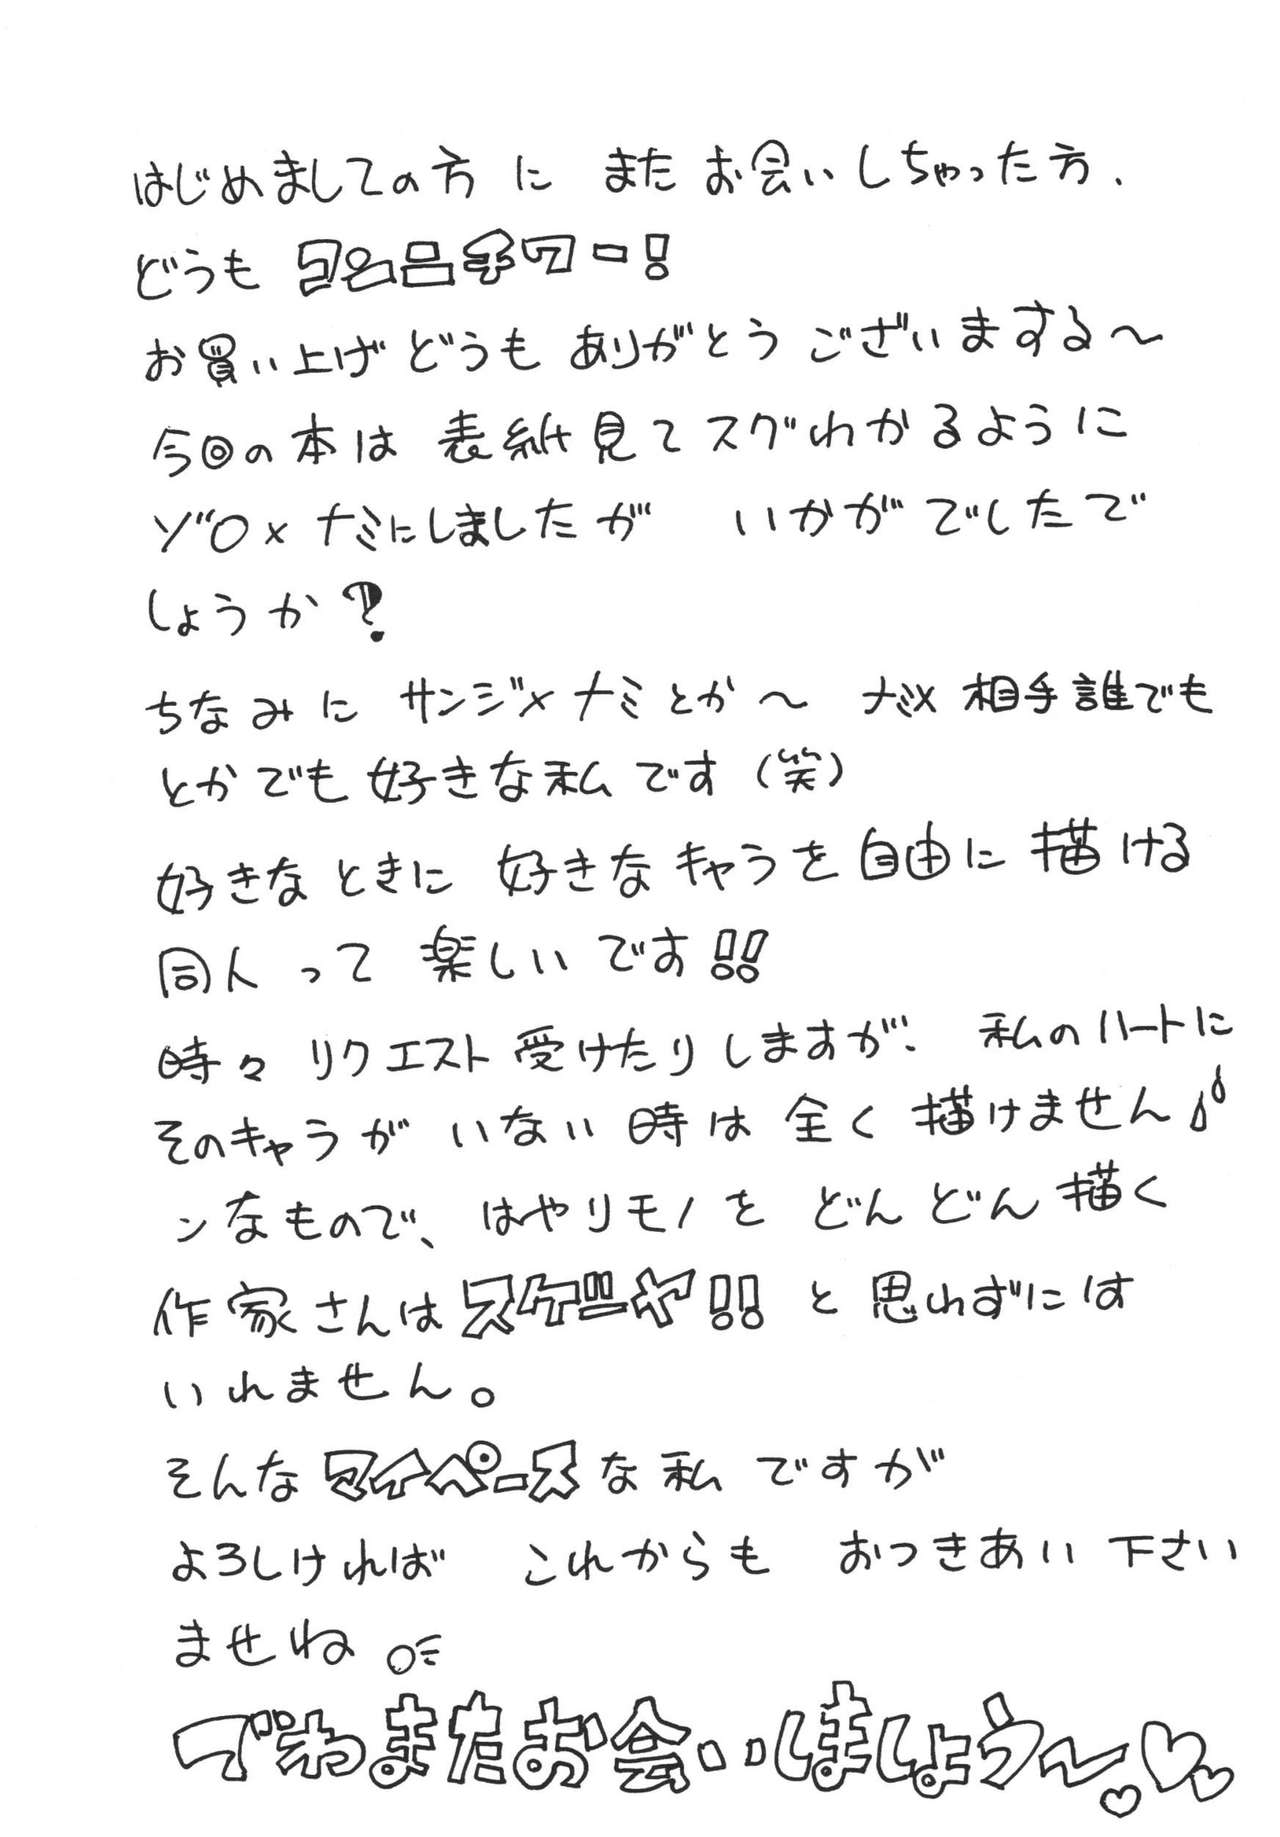 はじめましての方に またお会いしちゃった方、
どうも コんロチワー!
お買い上げどうもありがとうございまする〜
今回の本は 表紙見てスグわかるように
ゾロ×ナミにしましたが いかがでしたで
しょうか?
ちなみに サンジ×ナミとか〜 ナミ×相手誰でも
とかでも好きな私です(笑)
好きなときに 好きなキャラを自由に描ける
同人って 楽しいです!!
時々 リクエスト受けたりしますが、 私のハートに
そのキャラが いない時は 全く描けません
ンなもので、はやりモノを どんどん描く
作家さんは スゲーや!! と思わずには
いれません。
そんな マイペースな私ですが
よろしければ これからも おつきあい下さい
ませね
でわまたお会いしましょう〜♡♡♡